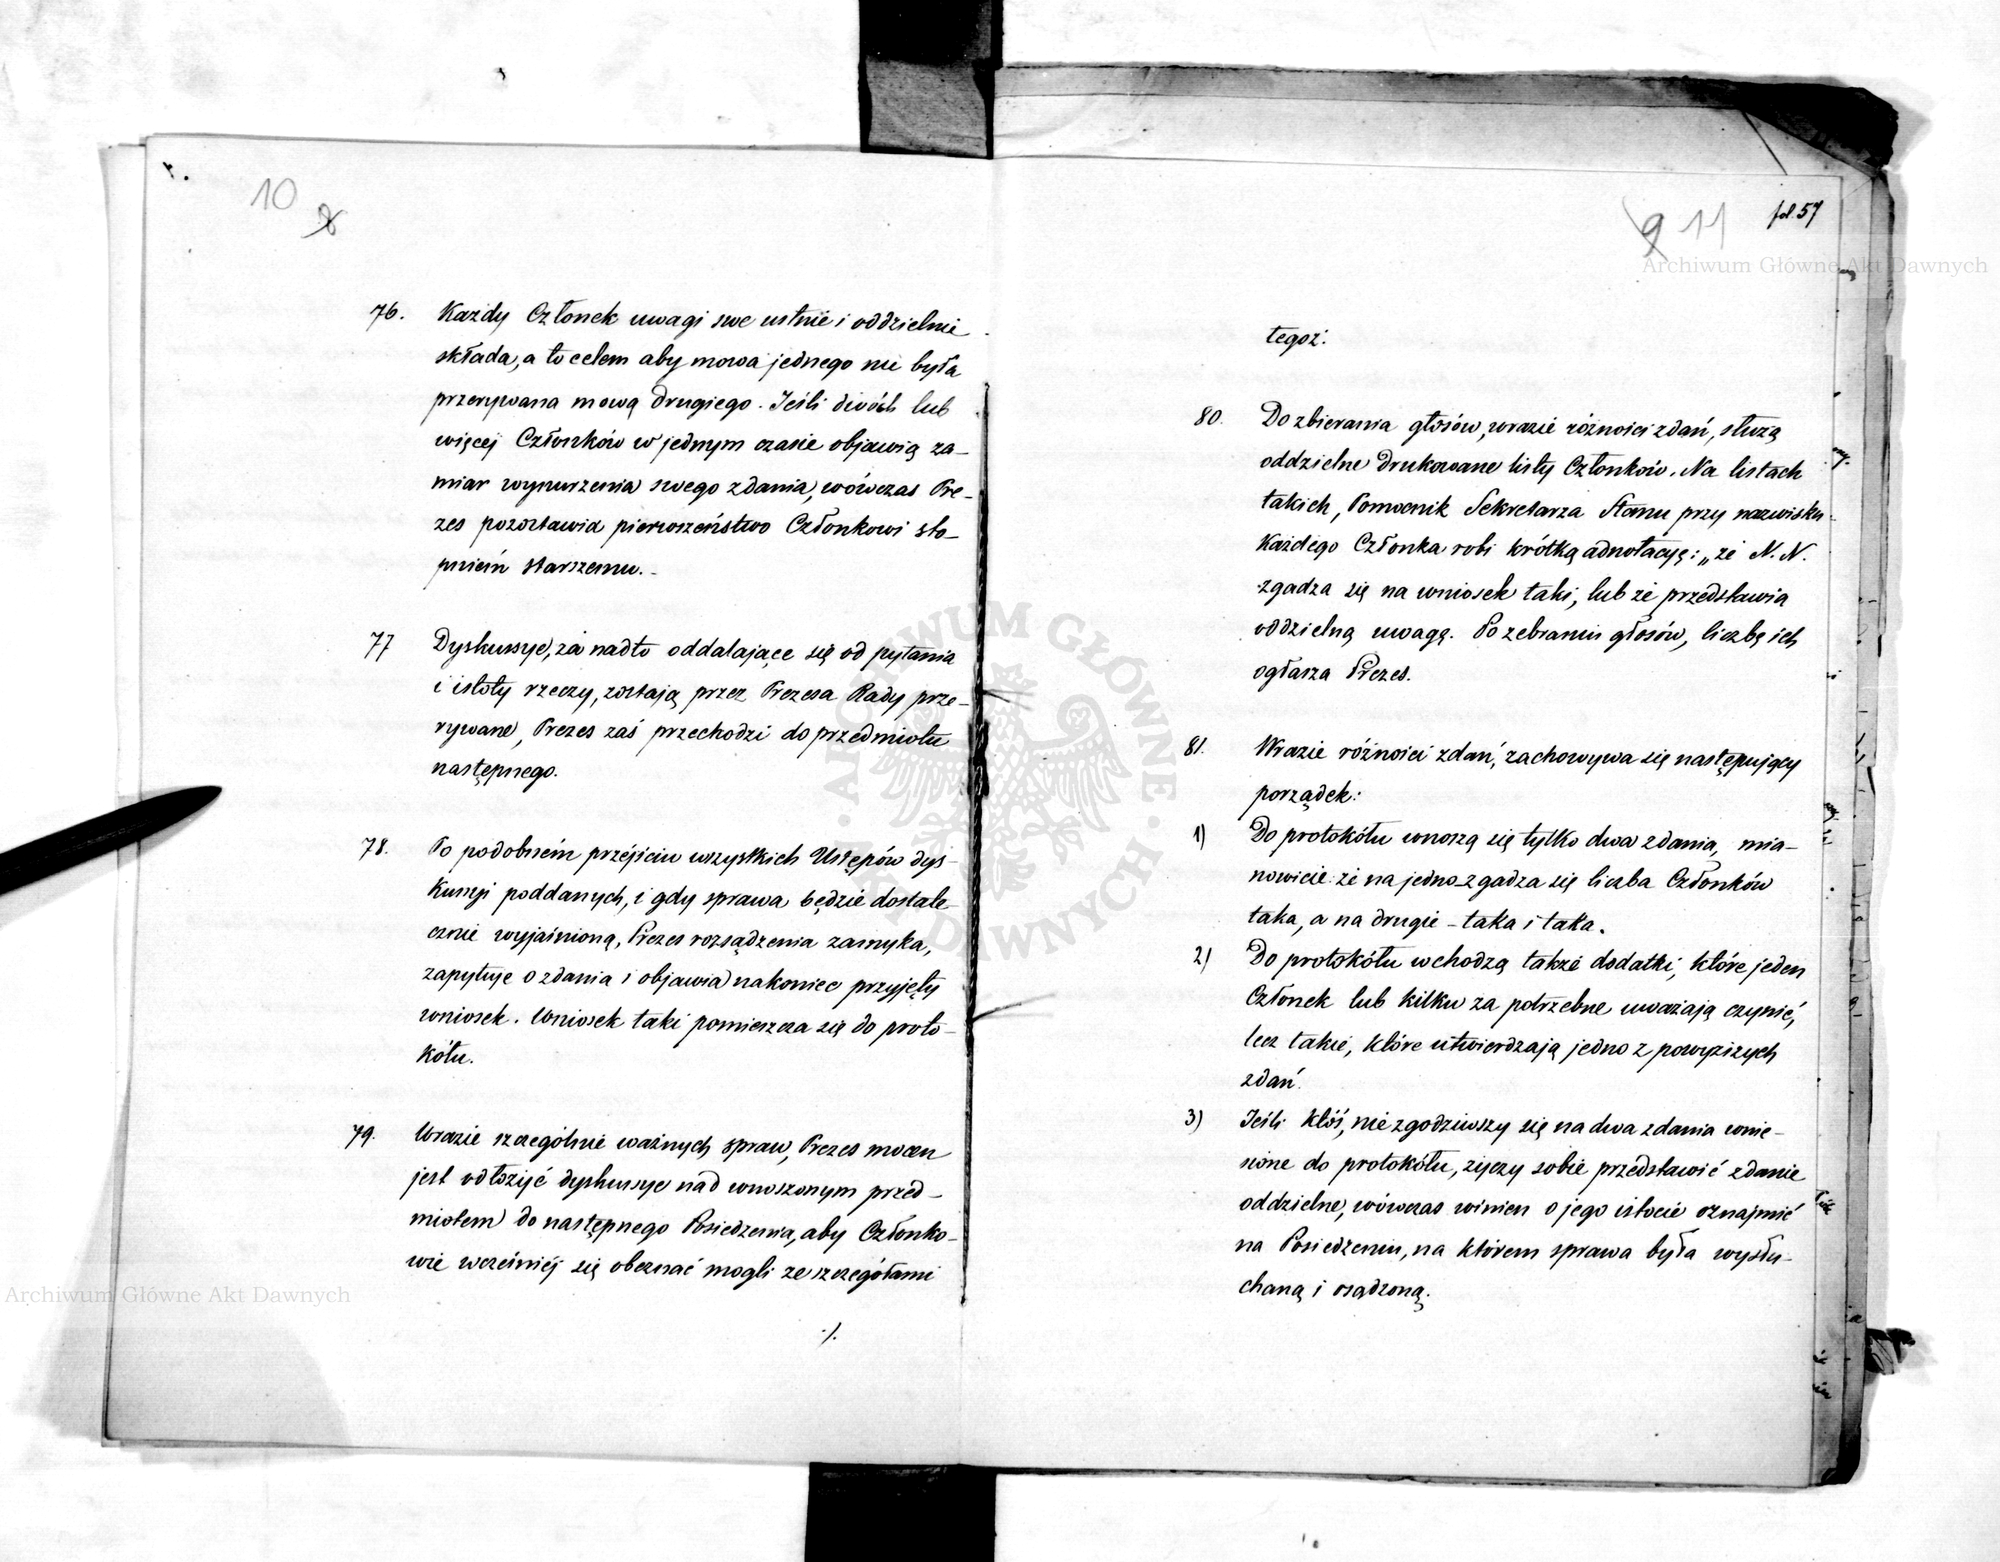 10 8
76. Każdy Członek uwagi swe ustnie i oddzielnie
składa, a to celem aby mowa jednego nie była
przerywana mową drugiego. Jeśli dwóch lub
więcej Członków w jednym czasie objawią za-
miar wynurzenia swego zdania, wówczas Pre-
zes pozostawia pierwszeństwo Członkowi sto-
pniem starszemu.-
77 Dyskussye, za nadto oddalające się od pytania
i istoty rzeczy, zostają przez Prezesa Rady prze-
rywane, Prezes zaś przechodzi do przedmiotu
następnego.
78. Po podobném przejściu wszystkich Ustępów dys-
kussyi poddanych, i gdy sprawa będzie dostate-
cznie wyjaśnioną, Prezes rozsądzenia zamyka,
zapytuje o zdania i objawia nakoniec przyjęty
wniosek. Wniosek taki pomieszcza się do proto-
kółu.
79. Wrazie szczególnie ważnych spraw, Prezes mocen
jest odłożyć dyskussye nad wnoszonym przed-
miotem do następnego Posiedzenia, aby Członko-
wie wcześniéj się obeznać mogli ze szczegółami
./.
9 11 fol. 57
tegoż.
80. Do zbierania głosów, wrazie różności zdań, służą
oddzielne drukowane listy Członków. Na listach
takich, Pomocnik Sekretarza Stanu przy nazwisku
każdego Członka robi krótką adnotacyę: „że N. N.
zgadza się na wniosek taki, lub że przedstawia
oddzielną uwagę. Po zebraniu głosów, liczbę ich
ogłasza Prezes.
81. Wrazie różności zdań, zachowywa się następujący
porządek:
1) Do protokółu wnoszą się tylko dwa zdania, mia-
nowicie: że na jedno zgadza się liczba Członków
taka, a na drugie - taka i taka.
2) Do protokółu wchodzą także dodatki, które jeden
Członek lub kilku za potrzebne uważają czynić,
lecz takie, które utwierdzają jedno z powyższych
zdań.
3) Jeśli ktoś, nie zgodziwszy się na dwa zdania wnie-
sione do protokółu, życzy sobie przedstawić zdanie
oddzielne, wówczas winien o jego istocie oznajmić
na Posiedzeniu, na którem sprawa była wysłu-
chaną i osądzoną.
Archiwum Główne Akt Dawnych
Archiwum Główne Akt Dawnych
ARCHIWUM GŁÓWNE AKT DAWNYCH